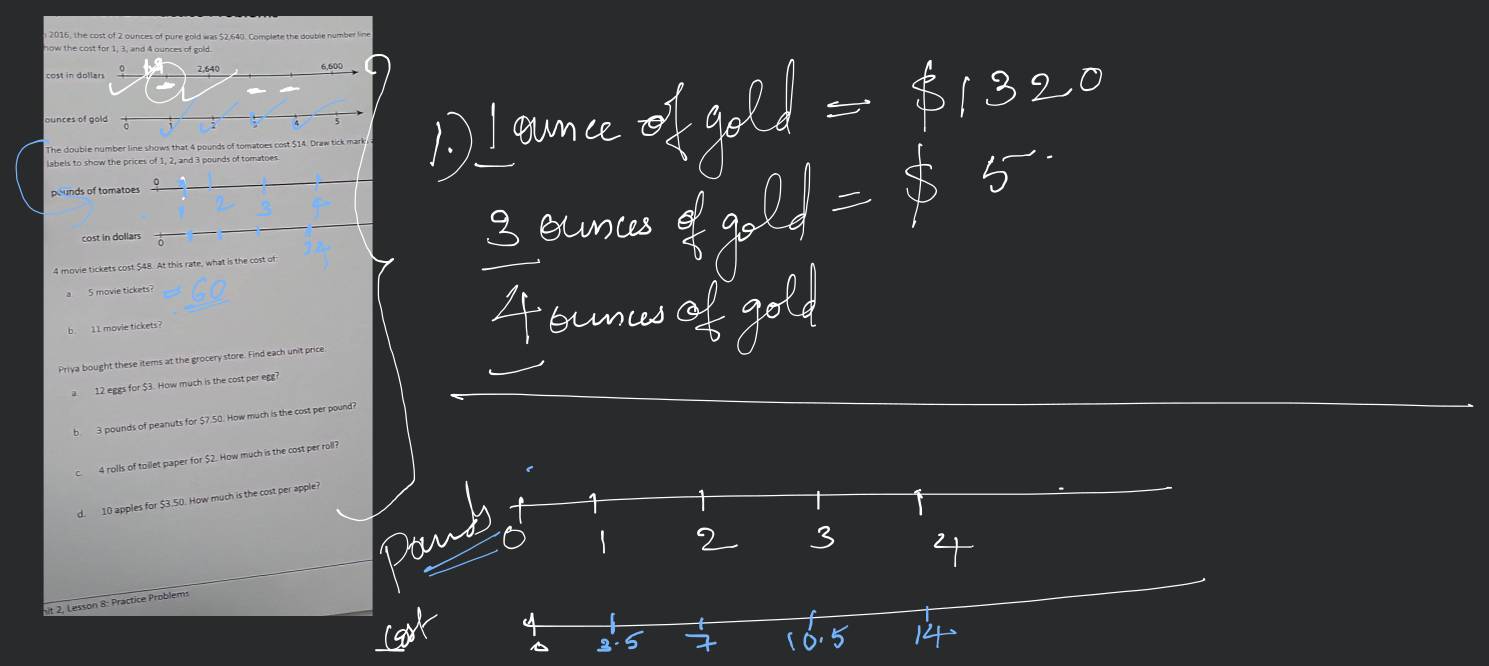 2016, the cost of 2 ounces of pure gold was $2,640. Complete the double number line
how the cost for 1, 3, and 4 ounces of gold.
cost in dollars 0 2,640 6,600
ounces of gold 0 1 2 3 4 5
The double number line shows that 4 pounds of tomatoes cost $14. Draw tick mark
labels to show the prices of 1, 2, and 3 pounds of tomatoes.
pounds of tomatoes 0
1 2 3 4
cost in dollars 0
14
4 movie tickets cost $48. At this rate, what is the cost of:
a. 5 movie tickets? = 60
b. 11 movie tickets?
Priya bought these items at the grocery store. Find each unit price.
a. 12 eggs for $3. How much is the cost per egg?
b. 3 pounds of peanuts for $7.50. How much is the cost per pound?
c. 4 rolls of toilet paper for $2. How much is the cost per roll?
d. 10 apples for $3.50. How much is the cost per apple?
nit 2, Lesson 8: Practice Problems
1.) 1 ounce of gold = $1320
3 ounces of gold = $ 5
4 ounces of gold
Pounds 0 1 2 3 4
cost 0 3.5 7 10.5 14